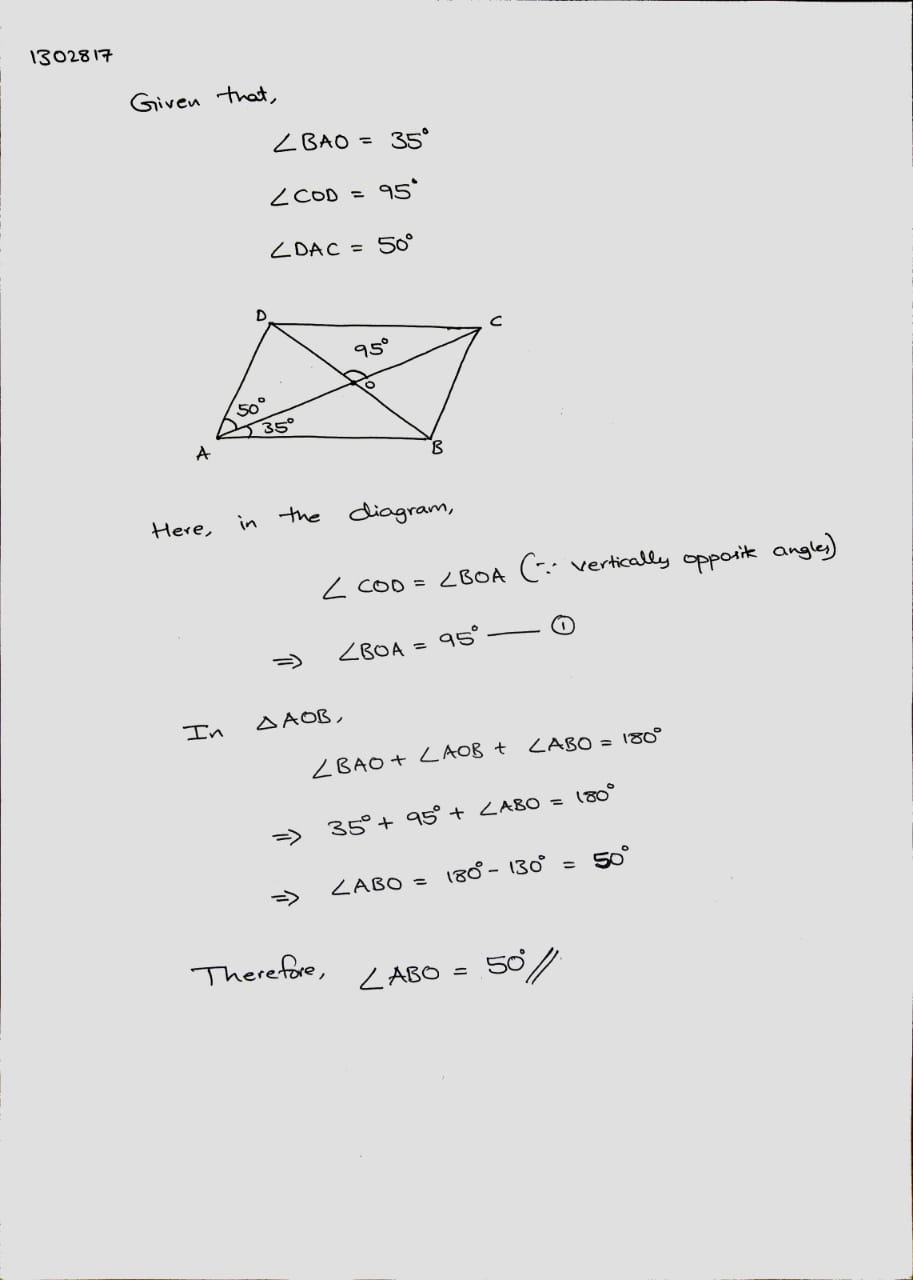 1302817
Given that,
∠BAO = 35°
∠COD = 95°
∠DAC = 50°
D
C
95°
O
50°
35°
A
B
Here, in the diagram,
∠COD = ∠BOA (∵ vertically opposite angles)
⇒ ∠BOA = 95° — ①
In △AOB,
∠BAO + ∠AOB + ∠ABO = 180°
⇒ 35° + 95° + ∠ABO = 180°
⇒ ∠ABO = 180° - 130° = 50°
Therefore, ∠ABO = 50° //